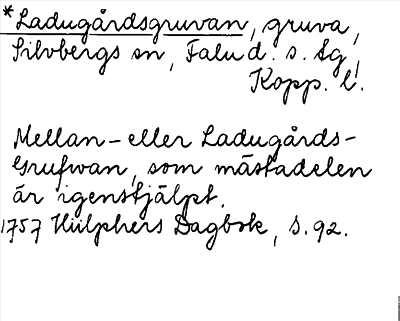 *Ladugårdsgruvan, gruva,
Silvbergs sn, Falu d. s. lg,
Kopp. l.
Mellan- eller Ladugårds-
Grufwan, som mästadelen
är igenstjälpt.
1757 Hülphers Dagbok, s. 92.